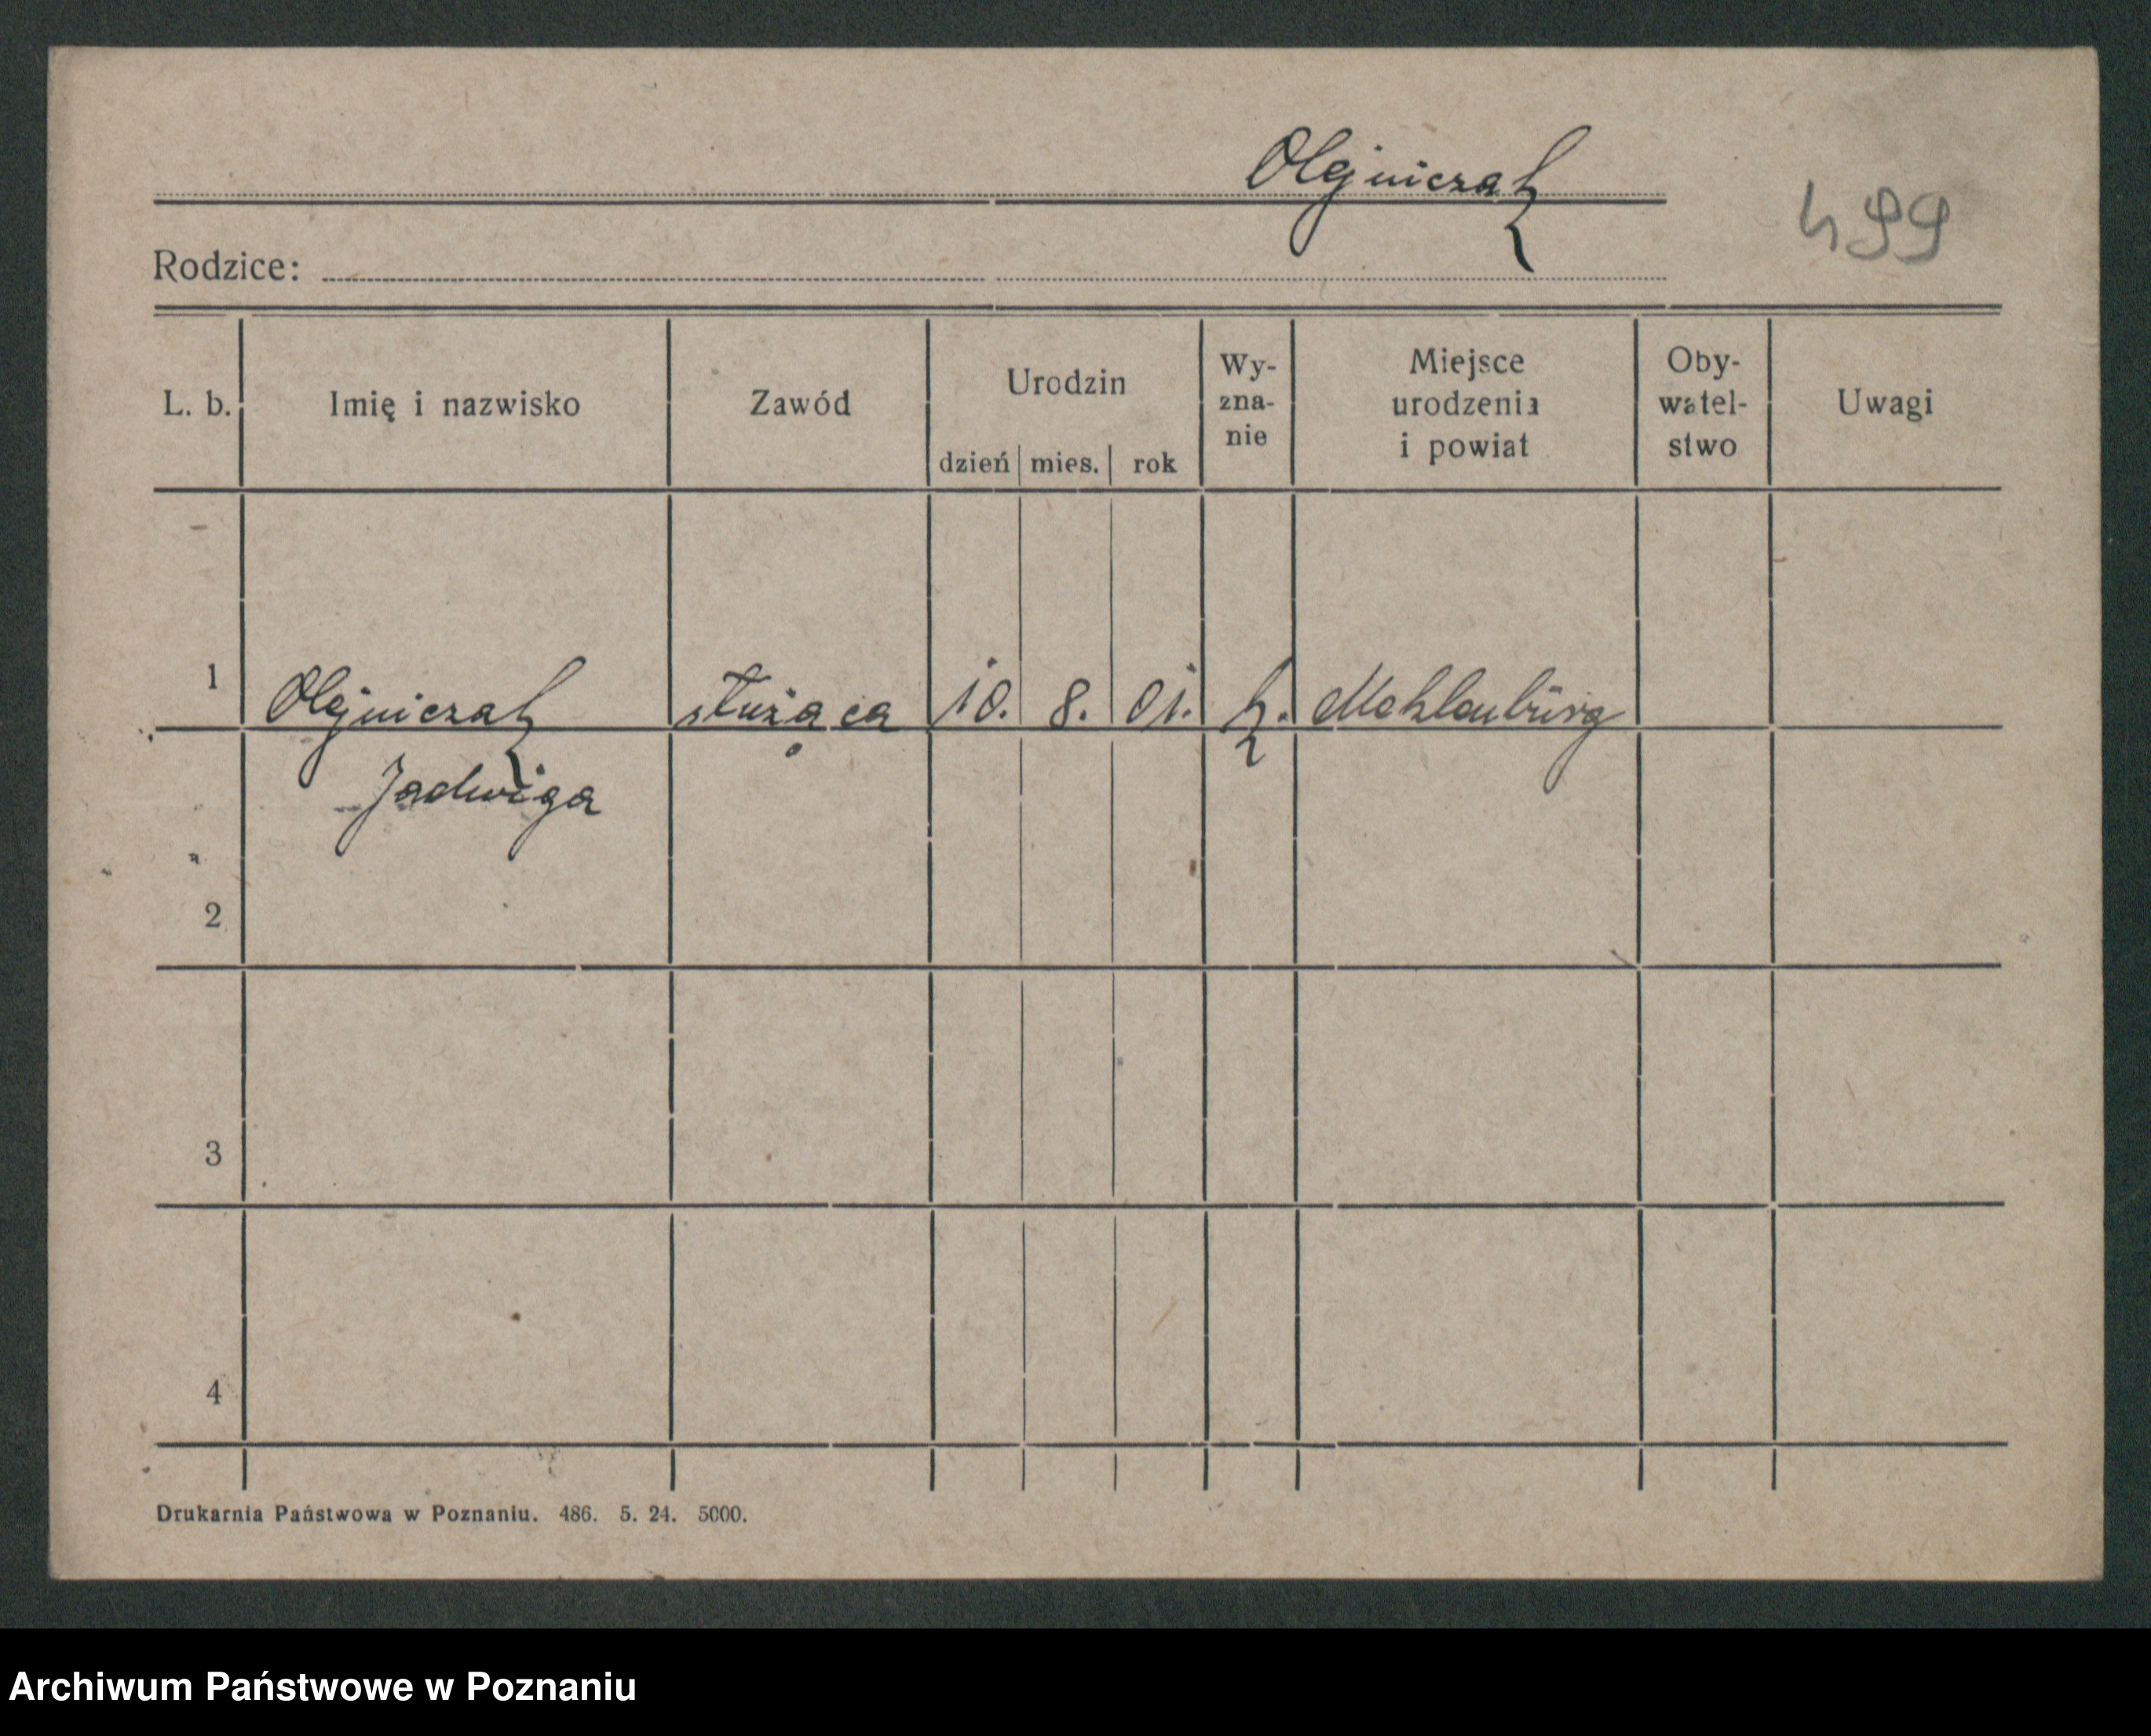 Olejniczak
499
Rodzice:
L. b. Imię i nazwisko Zawód Urodzin dzień mies. rok Wy-zna-nie Miejsce urodzenia i powiat Oby-watel-stwo Uwagi
1 Olejniczak służąca 10. 8. 01. k. Meklenbürg
Jadwiga
2
3
4
Drukarnia Państwowa w Poznaniu. 486. 5. 24. 5000.
Archiwum Państwowe w Poznaniu